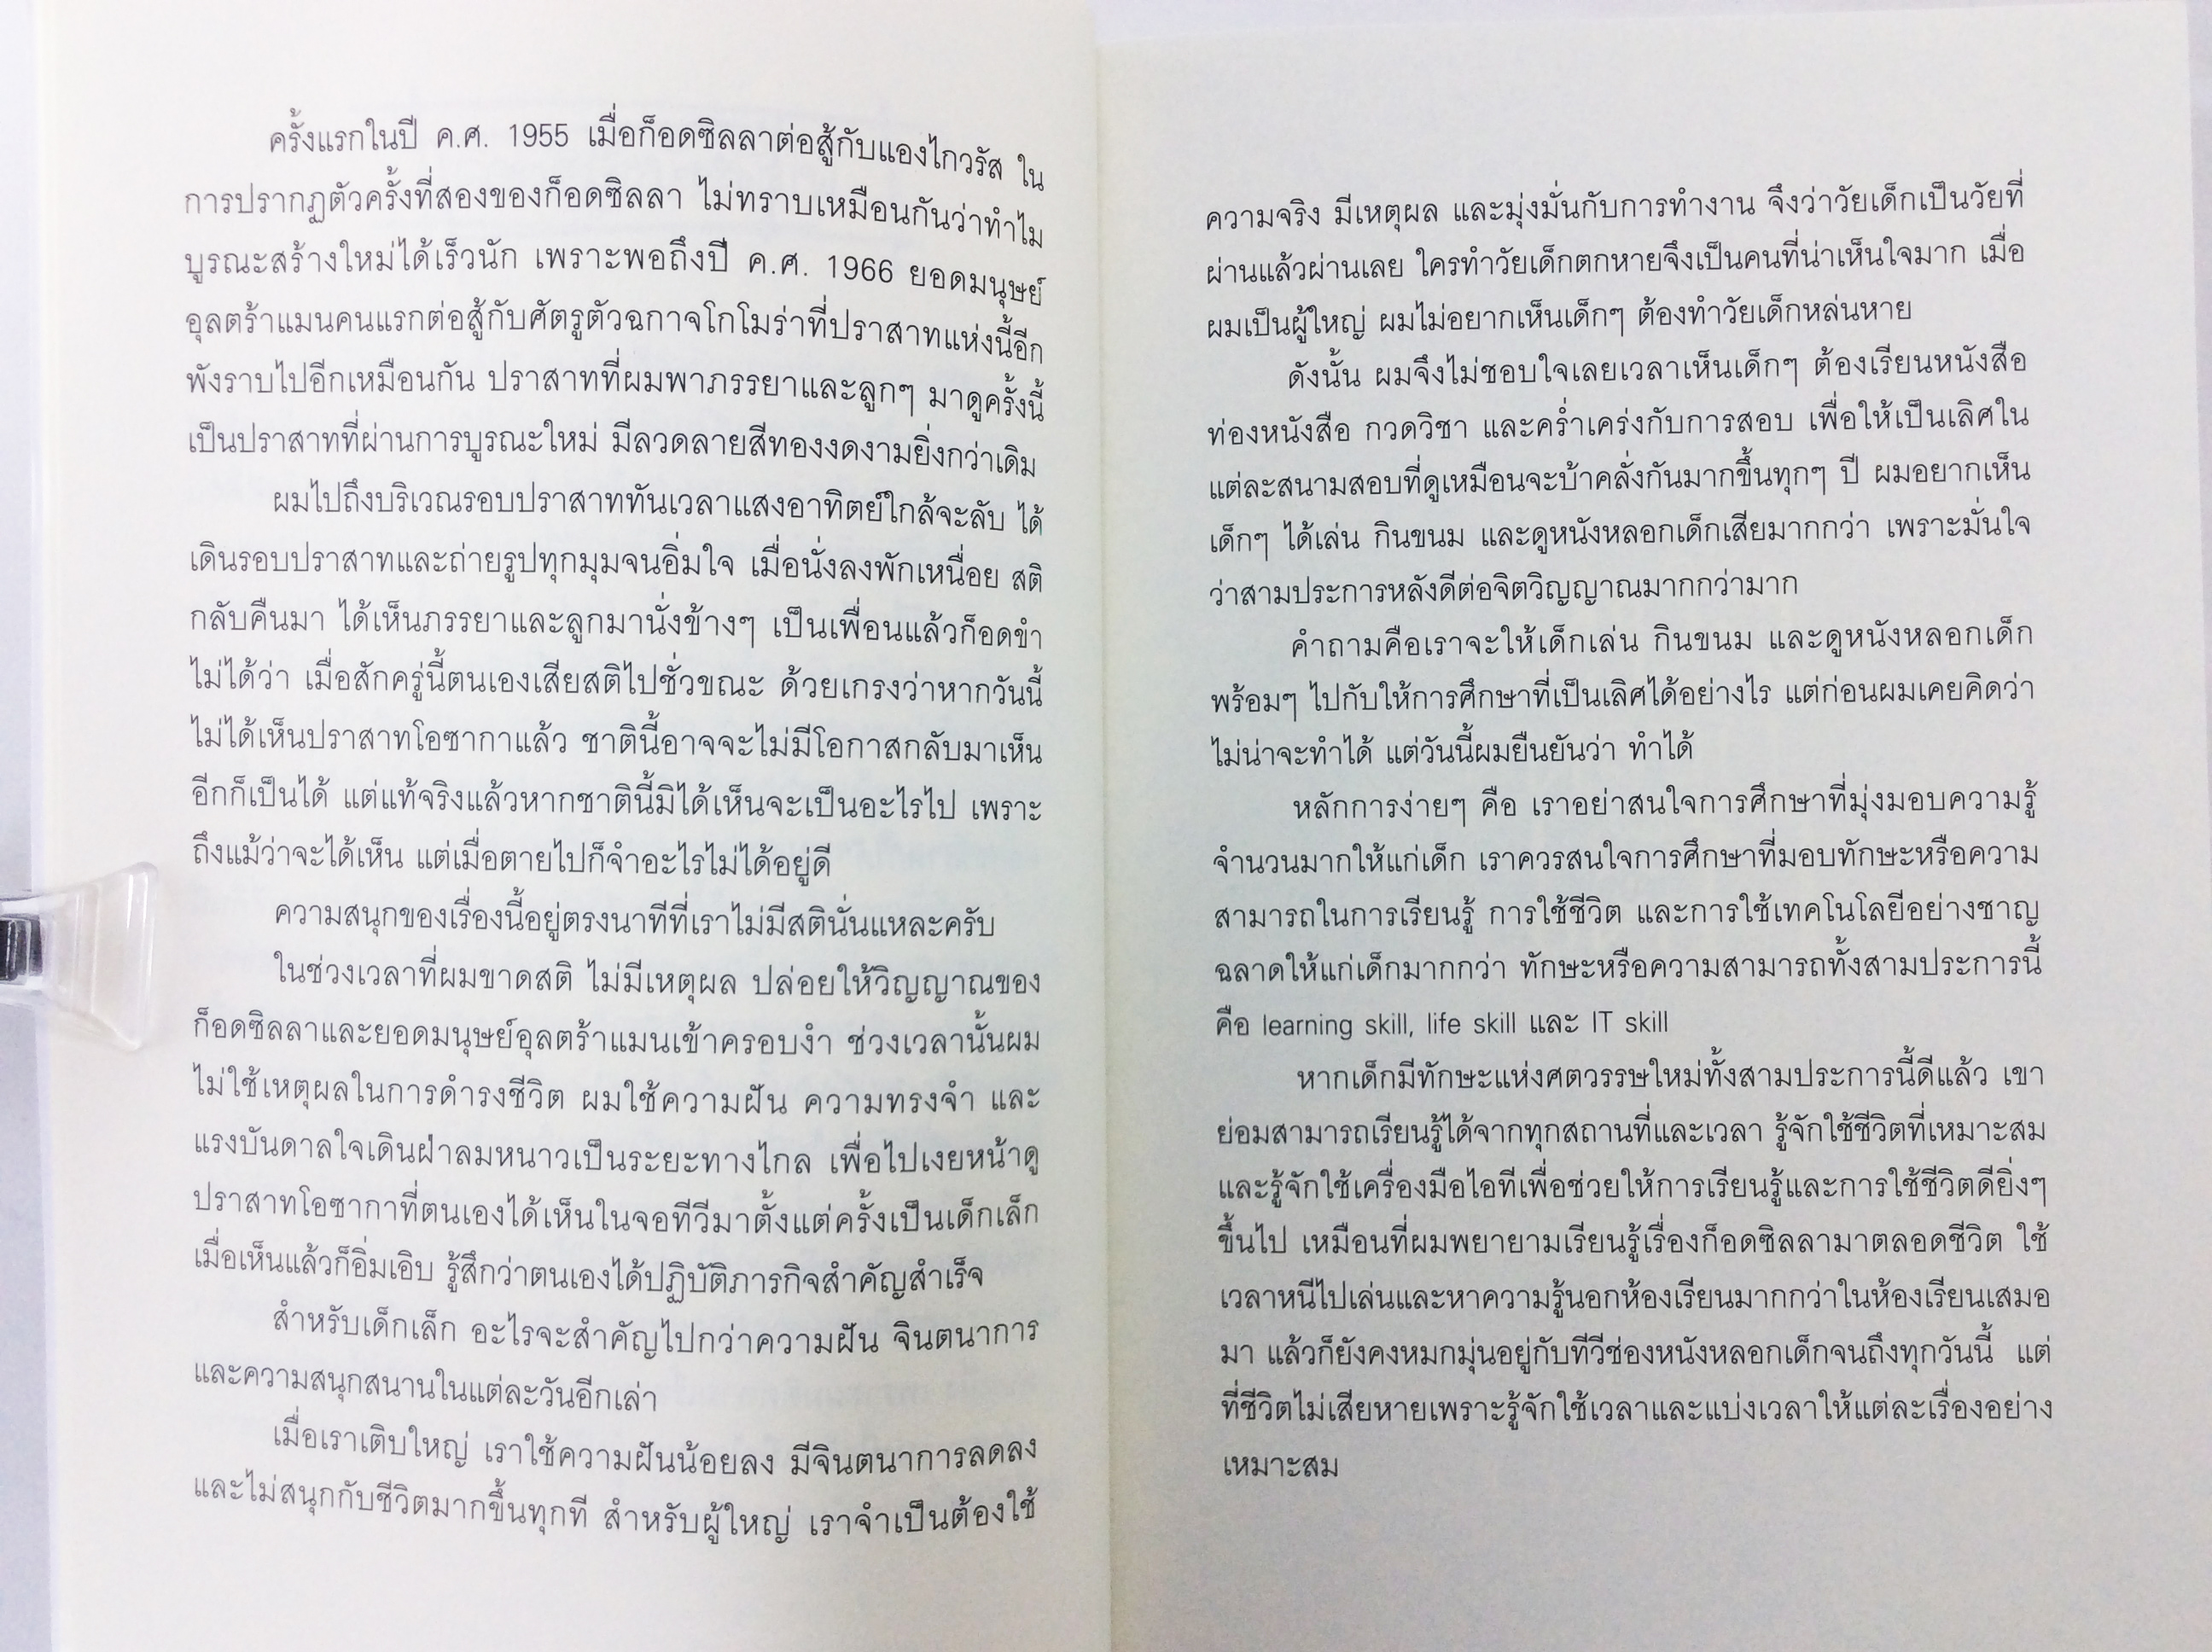 ครั้งแรกในปี ค.ศ. 1955 เมื่อก็อดซิลลาต่อสู้กับแองไกวรัส ใน
การปรากฏตัวครั้งที่สองของก็อดซิลลา ไม่ทราบเหมือนกันว่าทำไม
บูรณะสร้างใหม่ได้เร็วนัก เพราะพอถึงปี ค.ศ. 1966 ยอดมนุษย์
อุลตร้าแมนคนแรกต่อสู้กับศัตรูตัวฉกาจโกโมร่าที่ปราสาทแห่งนี้อีก
พังราบไปอีกเหมือนกัน ปราสาทที่ผมพาภรรยาและลูกๆ มาดูครั้งนี้
เป็นปราสาทที่ผ่านการบูรณะใหม่ มีลวดลายสีทองงดงามยิ่งกว่าเดิม
ผมไปถึงบริเวณรอบปราสาททันเวลาแสงอาทิตย์ใกล้จะลับ ได้
เดินรอบปราสาทและถ่ายรูปทุกมุมจนอิ่มใจ เมื่อนั่งลงพักเหนื่อย สติ
กลับคืนมา ได้เห็นภรรยาและลูกมานั่งข้างๆ เป็นเพื่อนแล้วก็อดขำ
ไม่ได้ว่า เมื่อสักครู่นี้ตนเองเสียสติไปชั่วขณะ ด้วยเกรงว่าหากวันนี้
ไม่ได้เห็นปราสาทโอซากาแล้ว ชาตินี้อาจจะไม่มีโอกาสกลับมาเห็น
อีกก็เป็นได้ แต่แท้จริงแล้วหากชาตินี้มิได้เห็นจะเป็นอะไรไป เพราะ
ถึงแม้ว่าจะได้เห็น แต่เมื่อตายไปก็จำอะไรไม่ได้อยู่ดี
ความสนุกของเรื่องนี้อยู่ตรงนาทีที่เราไม่มีสตินั่นแหละครับ
ในช่วงเวลาที่ผมขาดสติ ไม่มีเหตุผล ปล่อยให้วิญญาณของ
ก็อดซิลลาและยอดมนุษย์อุลตร้าแมนเข้าครอบงำ ช่วงเวลานั้นผม
ไม่ใช้เหตุผลในการดำรงชีวิต ผมใช้ความฝัน ความทรงจำ และ
แรงบันดาลใจเดินฝ่าลมหนาวเป็นระยะทางไกล เพื่อไปเงยหน้าดู
ปราสาทโอซากาที่ตนเองได้เห็นในจอทีวีมาตั้งแต่ครั้งเป็นเด็กเล็ก
เมื่อเห็นแล้วก็อิ่มเอิบ รู้สึกว่าตนเองได้ปฏิบัติภารกิจสำคัญสำเร็จ
สำหรับเด็กเล็ก อะไรจะสำคัญไปกว่าความฝัน จินตนาการ
และความสนุกสนานในแต่ละวันอีกเล่า
เมื่อเราเติบใหญ่ เราใช้ความฝันน้อยลง มีจินตนาการลดลง
และไม่สนุกกับชีวิตมากขึ้นทุกที สำหรับผู้ใหญ่ เราจำเป็นต้องใช้
ความจริง มีเหตุผล และมุ่งมั่นกับการทำงาน จึงว่าวัยเด็กเป็นวัยที่
ผ่านแล้วผ่านเลย ใครทำวัยเด็กตกหายจึงเป็นคนที่น่าเห็นใจมาก เมื่อ
ผมเป็นผู้ใหญ่ ผมไม่อยากเห็นเด็กๆ ต้องทำวัยเด็กหล่นหาย
ดังนั้น ผมจึงไม่ชอบใจเลยเวลาเห็นเด็กๆ ต้องเรียนหนังสือ
ท่องหนังสือ กวดวิชา และคร่ำเคร่งกับการสอบ เพื่อให้เป็นเลิศใน
แต่ละสนามสอบที่ดูเหมือนจะบ้าคลั่งกันมากขึ้นทุกๆ ปี ผมอยากเห็น
เด็กๆ ได้เล่น กินขนม และดูหนังหลอกเด็กเสียมากกว่า เพราะมั่นใจ
ว่าสามประการหลังดีต่อจิตวิญญาณมากกว่ามาก
คำถามคือเราจะให้เด็กเล่น กินขนม และดูหนังหลอกเด็ก
พร้อมๆ ไปกับให้การศึกษาที่เป็นเลิศได้อย่างไร แต่ก่อนผมเคยคิดว่า
ไม่น่าจะทำได้ แต่วันนี้ผมยืนยันว่า ทำได้
หลักการง่ายๆ คือ เราอย่าสนใจการศึกษาที่มุ่งมอบความรู้
จำนวนมากให้แก่เด็ก เราควรสนใจการศึกษาที่มอบทักษะหรือความ
สามารถในการเรียนรู้ การใช้ชีวิต และการใช้เทคโนโลยีอย่างชาญ
ฉลาดให้แก่เด็กมากกว่า ทักษะหรือความสามารถทั้งสามประการนี้
คือ learning skill, life skill และ IT skill
หากเด็กมีทักษะแห่งศตวรรษใหม่ทั้งสามประการนี้ดีแล้ว เขา
ย่อมสามารถเรียนรู้ได้จากทุกสถานที่และเวลา รู้จักใช้ชีวิตที่เหมาะสม
และรู้จักใช้เครื่องมือไอทีเพื่อช่วยให้การเรียนรู้และการใช้ชีวิตดียิ่งๆ
ขึ้นไป เหมือนที่ผมพยายามเรียนรู้เรื่องก็อดซิลลามาตลอดชีวิต ใช้
เวลาหนีไปเล่นและหาความรู้นอกห้องเรียนมากกว่าในห้องเรียนเสมอ
มา แล้วก็ยังคงหมกมุ่นอยู่กับทีวีช่องหนังหลอกเด็กจนถึงทุกวันนี้ แต่
ที่ชีวิตไม่เสียหายเพราะรู้จักใช้เวลาและแบ่งเวลาให้แต่ละเรื่องอย่าง
เหมาะสม